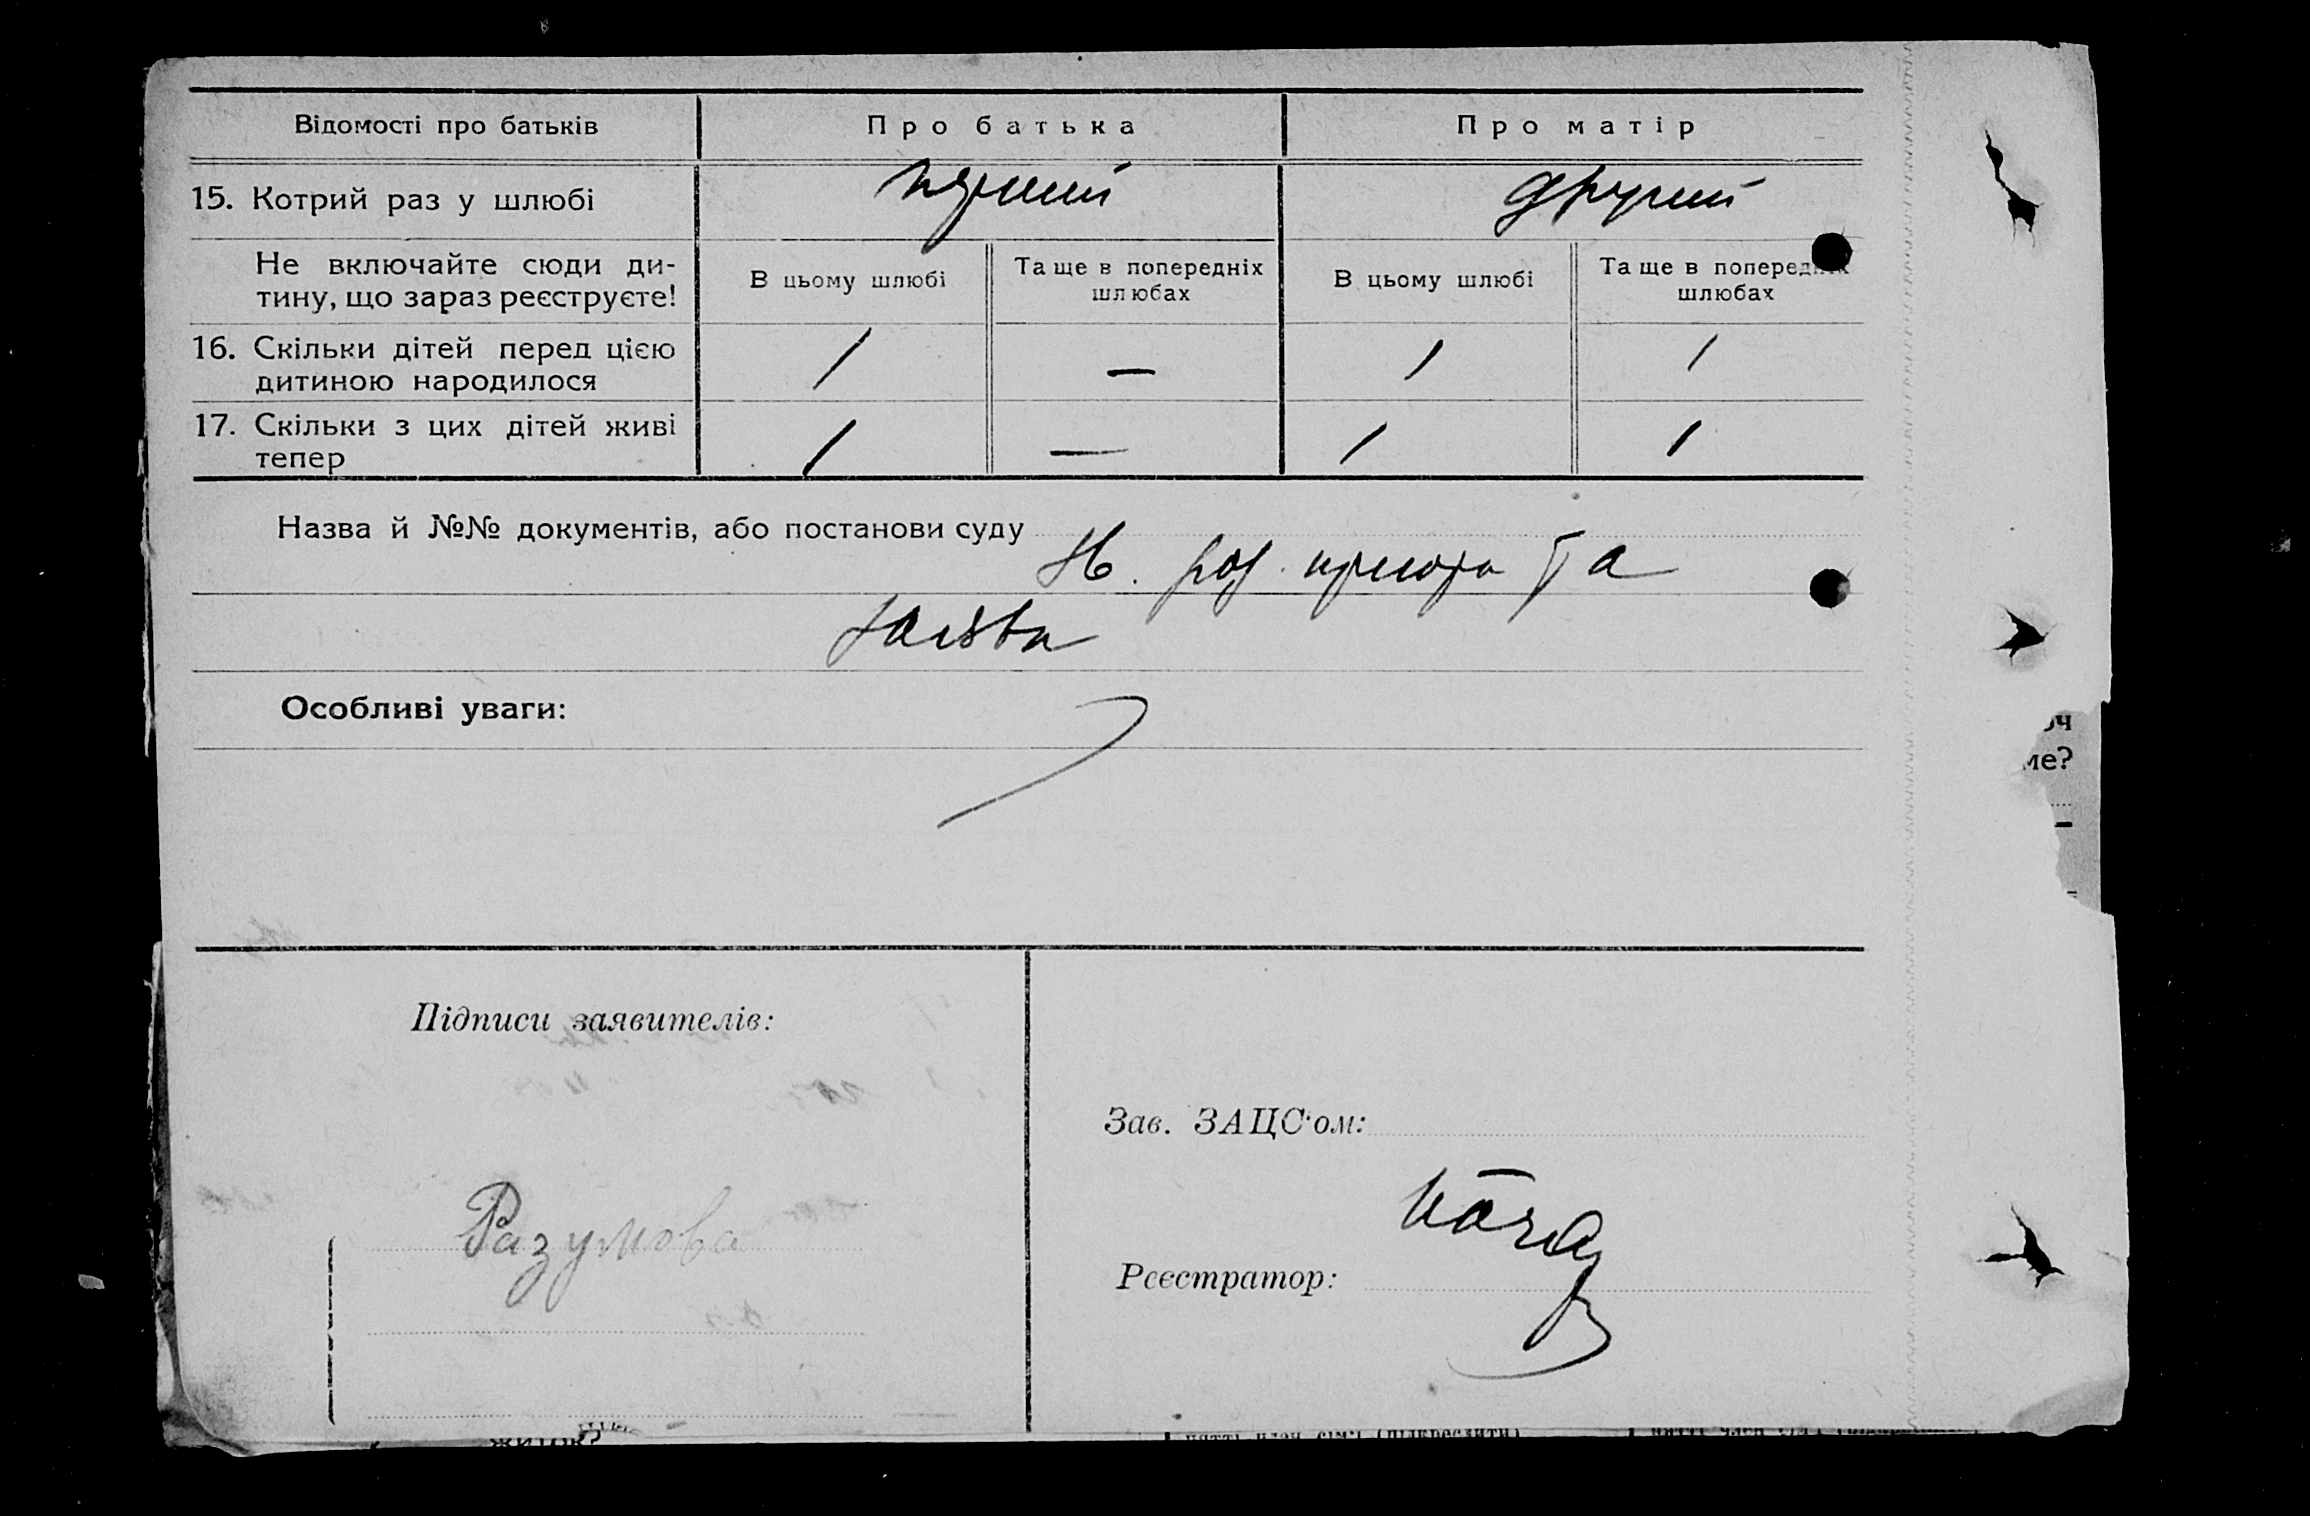 Відомості про батьків
Про батька
Про матір
15. Котрий раз у шлюбі
перший
другий
Не включайте сюди ди-
тину, що зараз реєструєте!
В цьому шлюбі
Та ще в попередніх
шлюбах
В цьому шлюбі
Та ще в попередніх
шлюбах
16. Скільки дітей перед цією
дитиною народилося
1
—
1
1
17. Скільки з цих дітей живі
тепер
1
—
1
1
Назва й №№ документів, або постанови суду
та
Особливі уваги:
Підписи заявителів:
Разумова
Зав. ЗАЦС'ом:
Реєстратор:
ме?